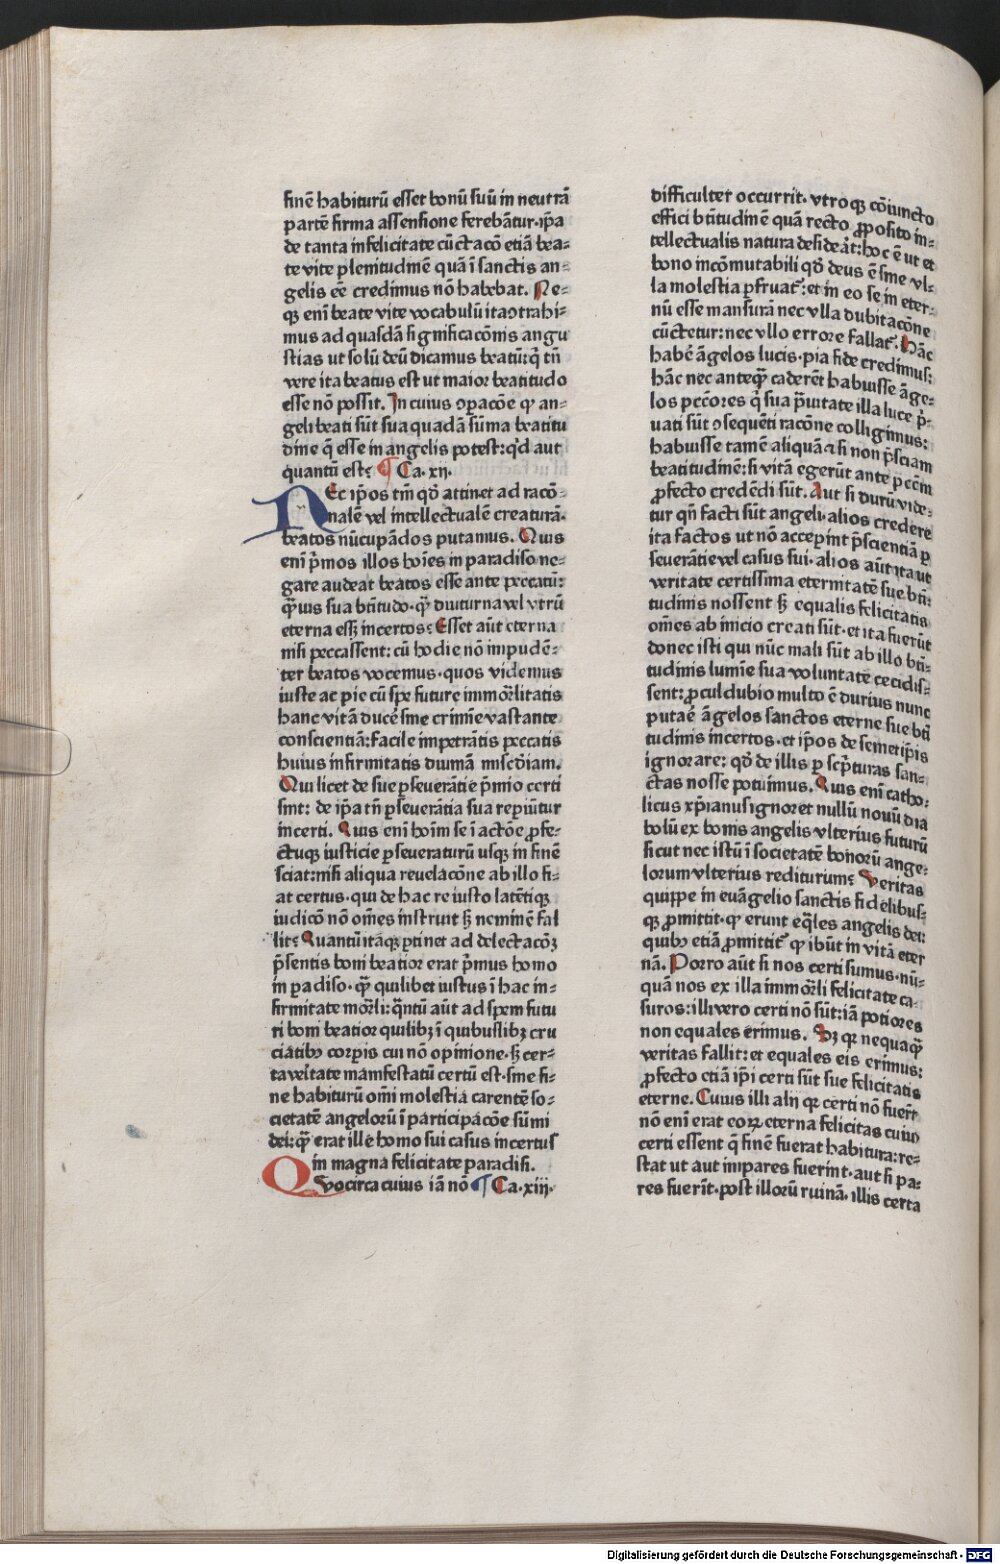 finē habiturū esset bonū suū in neutrā
partē firma assensione ferebāt᷑ur·ip̄a
de tanta infelicitate cūctacō etiā bea⸗
te vite plenitudinē quā ī sanctis an⸗
gelis eē credimus nō habebat. Ne⸗
qꝫ enī beate vite vocabulū ita ꝯtrahi⸗
mus ad quasdā significacōnis angu
stias ut solū deū dicamus beatū:q̇ tn̄
vere ita beatus est ut maior beatitudo
esse nō possit. In cuius ꝯparacōe qꝫ an⸗
geli beati sūt sua quadā sūma beatitu
dine q̄ esse in angelis potest:qͥd aut
quantū est? ¶ Ca. xij.
NEc ip̄os tm̄ qđ attinet ad racō⸗
nalē vel intellectualē creaturā·
beatos nūcupādos putamus. Quis
enī p̄mos illos hoīes in paradiso ne⸗
gare audeat beatos esse ante peccatū:
q̄ꝫuis sua btītudo·q̄ꝫ diuturna vel vtrū
eterna essꝫ incertos? Esset aūt eterna
nisi peccassent: cū hodie nō impudē⸗
ter beatos vocemus·quos videmus
iuste ac pie cū spe future immor̄litatis
hanc vitā ducē sine crimīe vastante
conscientiā:facile impetrātis peccatis
huius infirmitatis diuinā mīscđiam.
Qui licet de sue ꝑseuerātie p̄mio certi
sint: de ip̄a tn̄ ꝑseuerātia sua reperiūtur
incerti. Quis enī hoīm se ī actōe ꝓfe⸗
ctuqꝫ iusticie ꝑseueraturū usqꝫ in finē
sciat:nisi aliqua reuelacōne ab illo fi⸗
at certus·qui de hac re iusto latētiqꝫ
iudicō nō om̄es instruit sꝫ neminē fal
lit? Quantū itāqꝫ ꝑtinet ad delectacōꝫ
p̄sentis boni beatior erat p̄mus homo
in paradiso·q̄ꝫ quilibet iustus ī hac in⸗
firmitate mor̄li: q̄ntū aūt ad spem futu
ri boni beatior quilibꝫ ī quibuslibꝫ cru
ciatibꝰ corꝑis cui nō opinione·sꝫ cer⸗
ta veītate manifestatū certū est·sine fi⸗
ne habiturū om̄i molestia carentē so⸗
cietatē angelorū ī participacōe sūmi
dei:q̄ꝫ erat ille homo sui casus incertus
in magna felicitate paradisi.
QVocirca cuius iā nō ¶ Ca·xiij·
difficulter occurrit· vtroqꝫ cōiuncto
effici btītudinē quā recto ꝓposito in⸗
tellectualis natura desideāt:hoc ē ut et
bono incōmutabili qđ deus ē sine vl⸗
la molestia ꝑfruat᷑:et in eo se in eter⸗
nū esse mansurā nec vlla dubitacōne
cūctetur:nec vllo errore fallat᷑. Hāc
habē āgelos lucis·pia fide credimus:
hāc nec anteq̄ꝫ caderēt habuisse āge⸗
los pccōres q̇ sua p̄uitate illa luce p̄⸗
uati sūt ꝯsequēti racōne colligimus:
habuisse tamē aliquā ⁊ si non p̄sciam
beatitudinē: si vitā egerūt ante pccm̄
ꝓfecto credēdi sūt. Aut si durū vide⸗
tur qn̄ facti sūt angeli·alios credere
ita factos ut nō acceperint p̄scientiā ꝑ
seuerātie vel casus sui· alios aūt ita ut
veritate certissima eternitatē sue btī⸗
tudinis nossent sꝫ equalis felicitatis
om̄es ab inicio creati sūt·et ita fuerūt
donec isti qui nūc mali sūt ab illo btī⸗
tudinis lumīe sua voluntate cecidis⸗
sent:ꝓculdubio multo ē durius nunc
putaē āgelos sanctos eterne sue btī
tudinis incertos·et ip̄os de semetip̄is
ignorare: qđ de illis ꝑ scp̄turas san⸗
ctas nosse potuimus. Quis enī catho⸗
licus xp̄ianus ignoret nullū nouū dia
bolū ex bonis angelis vlterius futurū
sicut nec istū ī societatē bonorū ange⸗
lorum vlterius rediturum? Veritas
quippe in euāgelio sanctis fidelibus⸗
qꝫ ꝓmittit·qꝫ erunt eq̄les angelis dei:
quibꝰ etiā ꝓmittit᷑ qꝫ ibūt in vitā eter
nā. Porro aūt si nos certi sumus·nū⸗
quā nos ex illa immor̄li felicitate ca⸗
suros:illi vero certi nō sūt:iā potiores
non equales erimus. Sꝫ qꝛ nequaq̄ꝫ
veritas fallit:et equales eis erimus:
ꝓfecto etiā ip̄i certi sūt sue felicitatis
eterne. Cuius illi alij qꝛ certi nō fuer̄t
nō enī erat eoꝝ eterna felicitas cuiꝰ
certi essent q̄ finē fuerat habitura:re⸗
stat ut aut impares fuerint·aut si pa⸗
res fuer̄t·post illorū ruinā·illis certa
Digitalisierung gefördert durch die Deutsche Forschungsgemeinschaft - DFG